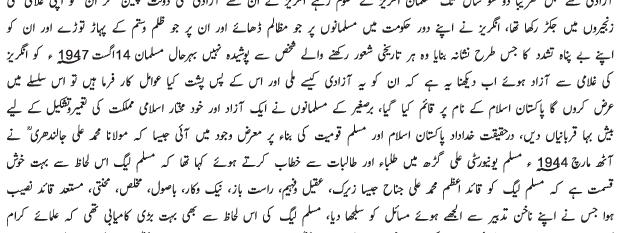 زنجیروں میں جکڑ رکھا تھا، انگریز نے اپنے دور حکومت میں مسلمانوں پر جو مظالم ڈھائے اور ان پر جو ظلم وستم کے پہاڑ توڑے اور ان کو
اپنے بے پناہ تشدد کا جس طرح نشانہ بنایا وہ ہر تاریخی شعور رکھنے والے شخص سے پوشیدہ نہیں بہرحال مسلمان 14 اگست 1947ء کو انگریز
کی غلامی سے آزاد ہوئے اب دیکھنا یہ ہے کہ ان کو یہ آزادی کیسے ملی اور اس کے پس پشت کیا عوامل کار فرما ہیں، تو اس سلسلے میں
عرض کروں گا پاکستان اسلام کے نام پر قائم کیا گیا، برصغیر کے مسلمانوں نے ایک آزاد اور خود مختار اسلامی مملکت کی تعمیر وتشکیل کے لیے
بیش بہا قربانیاں دیں، درحقیقت خداداد پاکستان اسلام اور مسلم قومیت کی بناء پر معرض وجود میں آئی جیسا کہ مولانا محمد علی جالندھریؒ نے
آٹھ مارچ 1944ء مسلم یونیورسٹی علی گڑھ میں طلباء اور طالبات سے خطاب کرتے ہوئے کہا تھا کہ مسلم لیگ اس لحاظ سے بہت خوش
قسمت ہے کہ مسلم لیگ کو قائد اعظم محمد علی جناح جیسا زیرک، عقیل وفہیم، راست باز، نیک وکار، باصول، مخلص، محنتی، مستعد قائد نصیب
ہوا جس نے اپنے ناخن تدبیر سے الجھے ہوئے مسائل کو سلجھا دیا، مسلم لیگ کی اس لحاظ سے بھی بہت بڑی کامیابی تھی کہ علمائے کرام